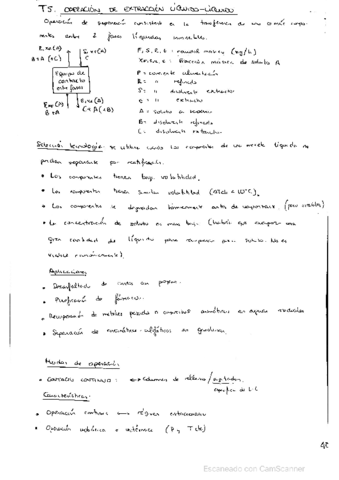 T5. OPERACIÓN DE EXTRACCIÓN LÍQUIDO-LÍQUIDO
Operación de separación consistente en la transferencia de uno o más compo-
nentes entre 2 fases líquidas inmiscibles.
F, S, R, E : caudal másico (kg/h)
B+A (+C) C
F = corriente alimentación
Equipo de contacto entre fases
R = " refinado
S = " disolvente extractor
E = " extracto
B+A C+A (+B)
A = soluto a recuperar
B = disolvente refinado
C = disolvente extractor
Selección tecnología: se utiliza cuando los componentes de una mezcla líquida no
pueden separarse por rectificación.
• Los componentes tienen baja volatilidad.
• Los componentes tienen similar volatilidad
• Los componentes se degradan térmicamente antes de evaporarse
• La concentración de soluto es muy baja (habría que evaporar una
gran cantidad de líquido para recuperar poco soluto. No es
viable económicamente).
Aplicaciones
• Desasfaltado de
• Purificación de fármacos.
• Recuperación de metales pesados o compuestos aromáticos en aguas residuales
• Separación de aromáticos-alifáticos en gasolinas.
Modos de operación
• CONTACTO CONTINUO: columnas de relleno/agitadas
Características:
• Operación continua régimen estacionario
• Operación isobárica e isotérmica (P y T cte)
Escaneado con CamScanner